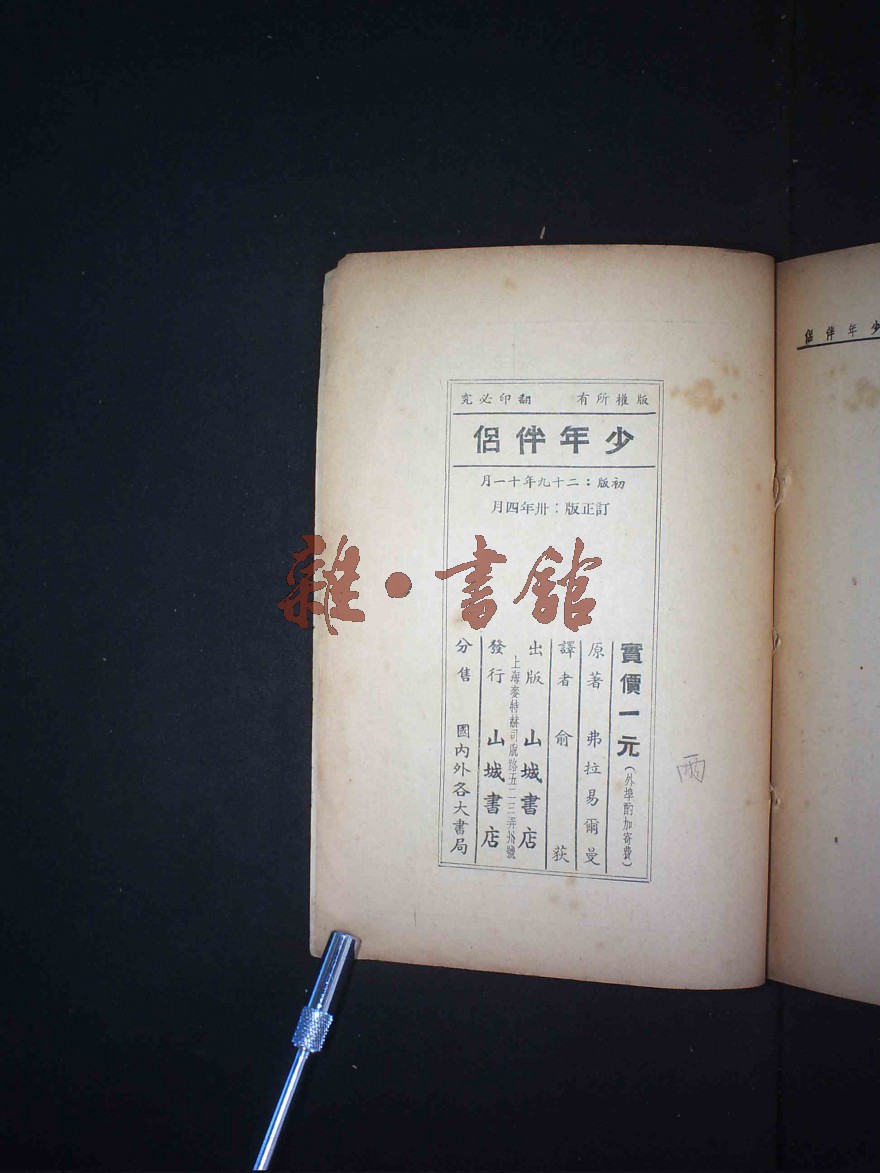 版權所有 翻印必究
少年伴侶
初版：二十九年十一月
訂正版：卅年四月
實價一元（外埠酌加寄費）
原著 弗拉易爾曼
譯者 俞荻
出版 山城書店
上海麥特赫司脫路五二三弄卅號
發行 山城書店
分售 國內外各大書局
少年伴侶
雜·書館